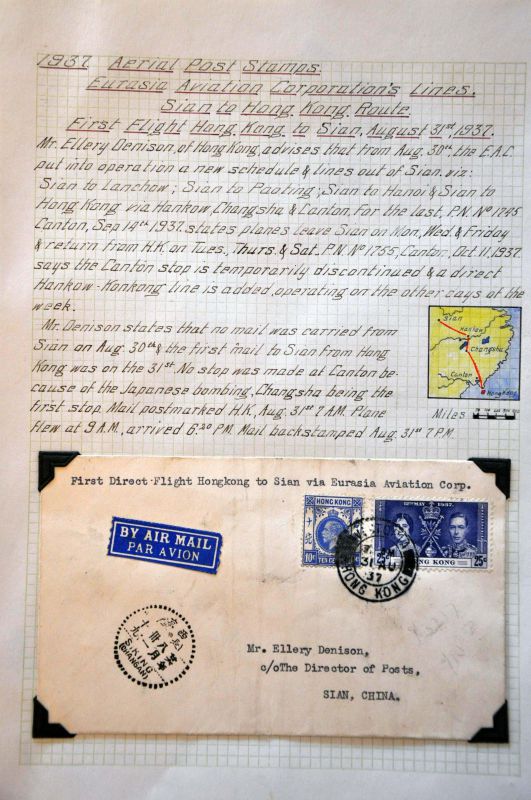 1937 Aerial Post Stamps
Eurasia Aviation Corporation's Lines.
Sian to Hong Kong Route
First Flight Hong Kong to Sian, August 31st, 1937.
Mr. Ellery Denison, of Hong Kong advises that from Aug. 30th, the E.A.C.
put into operation a new schedule & lines out of Sian, viz:
Sian to Lanchow; Sian to Paoting; Sian to Hanoi & Sian to
Hong Kong via Hankow, Changsha & Canton. For the last, P.N. No 1745
Canton, Sep 14th 1937. states planes leave Sian on Mon, Wed. & Friday
& return from H.K. on Tues, Thurs. & Sat. P.N. No 1755, Canton, Oct 11, 1937
says the Canton stop is temporarily discontinued & a direct
Hankow-Honkong line is added, operating on the other days of the
week.
Mr. Denison states that no mail was carried from
Sian on Aug. 30th & the first mail to Sian from Hong
Kong was on the 31st. No stop was made at Canton be-
cause of the Japanese bombing, Changsha being the
first stop. Mail postmarked H.K., Aug. 31st 7 A.M. Plane
flew at 9 A.M., arrived 6:30 P.M. Mail backstamped Aug. 31st 7 P.M.
Sian
Hankow
Changsha
Canton
Hongkong
Miles
First Direct Flight Hongkong to Sian via Eurasia Aviation Corp.
BY AIR MAIL
PAR AVION
HONG KONG
10c
TEN CENTS
12TH MAY 1937.
HONG KONG
25c
31 AU
37
HONG KONG
西安
長安
八年
卅一
月
十九
SIKING
(CHANGAN)
Mr. Ellery Denison,
c/oThe Director of Posts,
SIAN, CHINA.